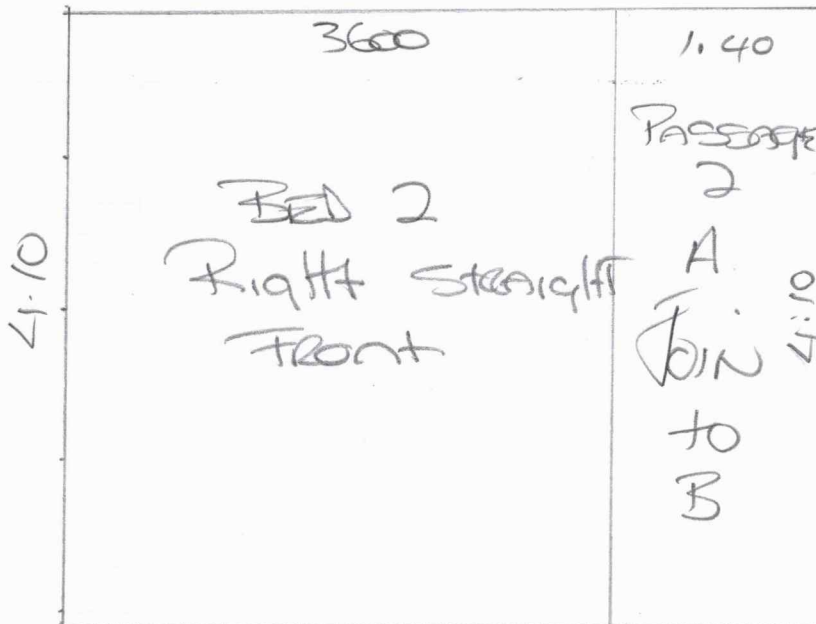 3600
1.40
BED 2
Right Straight
Front
4.10
PASSAGE
2
A
JOIN
to
B
4.10